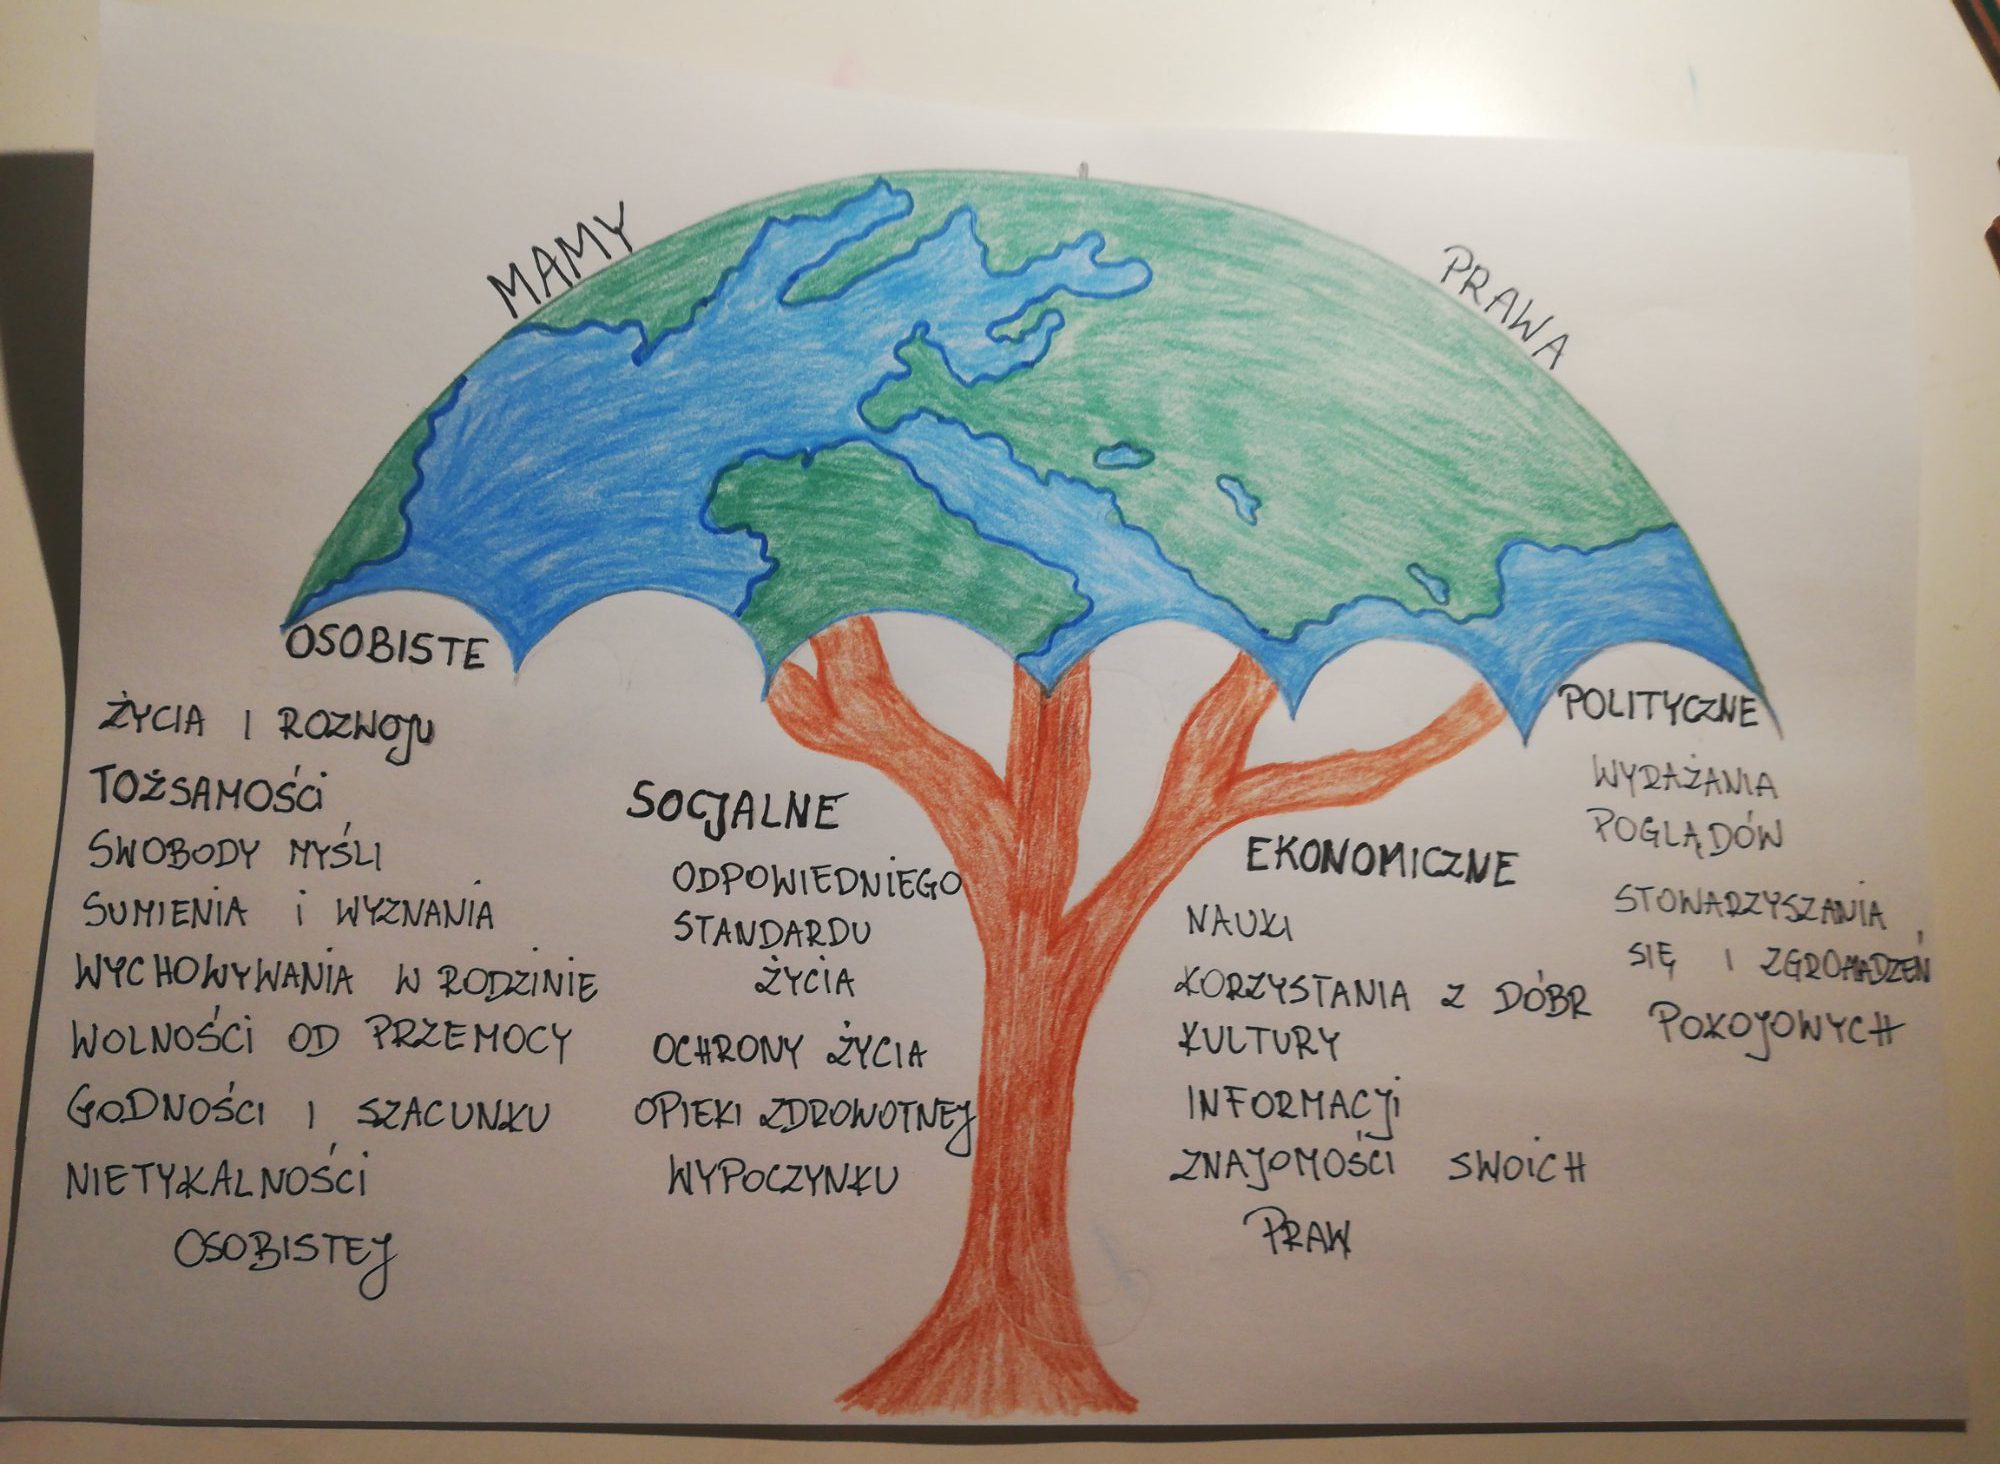 MAMY
PRAWA
OSOBISTE
ŻYCIA I ROZWOJU
TOŻSAMOŚCI
SWOBODY MYŚLI
SUMIENIA i WYZNANIA
WYCHOWYWANIA W RODZINIE
WOLNOŚCI OD PRZEMOCY
GODNOŚCI I SZACUNKU
NIETYKALNOŚCI
OSOBISTEJ
SOCJALNE
ODPOWIEDNIEGO
STANDARDU
ŻYCIA
OCHRONY ŻYCIA
OPIEKI ZDROWOTNEJ
WYPOCZYNKU
EKONOMICZNE
NAUKI
KORZYSTANIA Z DÓBR
KULTURY
INFORMACJI
ZNAJOMOŚCI SWOICH
PRAW
POLITYCZNE
WYRAŻANIA
POGLĄDÓW
STOWARZYSZANIA
SIĘ I ZGROMADZEŃ
POKOJOWYCH